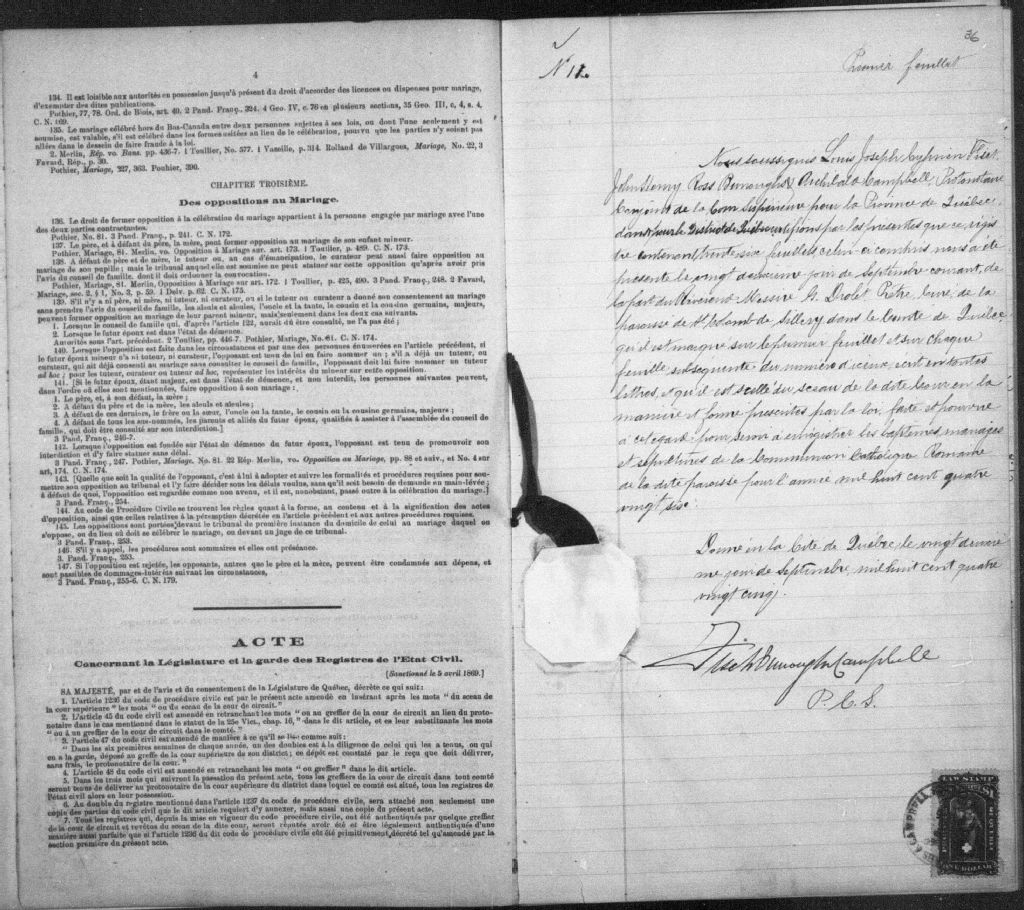 4
134. Il est loisible aux autorités en possession jusqu'à présent du droit d'accorder des licences ou dispenses pour mariage,
d'exempter des dites publications.
Pothier, 77, 78. Ord. de Blois, art. 40. 2 Pand. Franç., 324. 4 Geo. IV, c. 76 en plusieurs sections, 35 Geo. III, c, 4, s. 4,
C. N. 169.
135. Le mariage célébré hors du Bas-Canada entre deux personnes sujettes à ses lois, ou dont l'une seulement y est
soumise, est valable, s'il est célébré dans les formes usitées au lieu de la célébration, pourvu que les parties n'y soient pas
allées dans le dessein de faire fraude à la loi.
2. Merlin, Rép. vo. Bans. pp. 436-7. 1 Toullier, No. 577. 1 Vazeille, p. 314. Rolland de Villargues, Mariage, No. 22, 3
Favard, Rép., p. 30.
Pothier, Mariage, 327, 363. Pouhier, 390.
CHAPITRE TROISIÈME.
Des oppositions au Mariage.
136. Le droit de former opposition à la célébration du mariage appartient à la personne engagée par mariage avec l'une
des deux parties contractantes.
Pothier, No. 81. 3 Pand. Franç., p. 241. C. N. 172.
137. Le père, et à défaut du père, la mère, pont former opposition au mariage de son enfant mineur.
Pothier, Mariage, 81. Merlin, vo. Opposition à Mariage sur. art. 173. 1 Toullier, p. 489. C. N. 173.
138. A défaut de père et de mère, le tuteur ou, an cas d'émancipation, le curateur peut aussi faire opposition au
mariage de son pupille ; mais le tribunal auquel elle est soumise ne peut statuer sur cette opposition qu'après avoir pris
l'avis du conseil de famille, dont il doit ordonner la convocation.
Pothier, Mariage, 81. Merlin, Opposition à Mariage sur art. 172. 1 Toullier, p. 425, 490. 3 Pand. Franç., 248. 2 Favard,
Mariage, sec. 2, § 1, No. 3, p. 59. 1 Delv. p. 62. C. N. 175.
139. S'il n'y a ni père, ni mère, ni tuteur, ni curateur, ou si le tuteur ou curateur a donné son consentement au mariage
sans prendre l'avis du conseil de famille, les aïeuls et aïeules, l'oncle et la tante, le cousin et la cousine germains, majeurs,
peuvent former opposition au mariage de leur parent mineur, mais seulement dans les deux cas suivants.
1. Lorsque le conseil de famille qui, d'après l'article 122, aurait dû être consulté, ne l'a pas été ;
2. Lorsque le futur époux est dans l'état de démence.
Autorités sous l'art. précédent. 2 Toullier, pp. 446-7. Pothier, Mariage, No. 81. C. N. 174.
140. Lorsque l'opposition est faite dans les circonstances et par une des personnes énumérées en l'article précédent, si
le futur époux mineur n'a ni tuteur, ni curateur, l'opposant est tenu de lui en faire nommer un ; s'il a déjà un tuteur, ou
curateur, qui ait déjà consenti au mariage sans consulter le conseil de famille, l'opposant doit lui faire nommer un tuteur
ad hoc ; pour les tuteur, curateur ou tuteur ad hoc, représenter les intérêts du mineur sur cette opposition.
141. [Si le futur époux, étant majeur, est dans l'état de démence, et non interdit, les personnes suivantes peuvent,
dans l'ordre où elles sont mentionnées, faire opposition à son mariage :
1. Le père, et, à son défaut, la mère ;
2. A défaut du père et de la mère, les aïeuls et aïeules ;
3. A défaut de ces derniers, le frère ou la sœur, l'oncle ou la tante, le cousin ou la cousine germains, majeurs ;
4. A défaut de tous les sus-nommés, les parents et alliés du futur époux, qualifiés à assister à l'assemblée du conseil de
famille, qui doit être consulté sur son interdiction.]
3 Pand. Franç., 246-7.
142. Lorsque l'opposition est fondée sur l'état de démence du futur époux, l'opposant est tenu de promouvoir son
interdiction et d'y faire statuer sans délai.
3 Pand. Franç., 247. Pothier, Mariage. No. 81. 22 Rép. Merlin, vo. Opposition au Mariage, pp. 88 et suiv., et No. 4 sur
art, 174. C. N. 174.
143. [Quelle que soit la qualité de l'opposant, c'est à lui à adopter et suivre les formalités et procédures requises pour sou-
mettre son opposition au tribunal et l'y faire décider sous les délais voulus, sans qu'il soit besoin de demande en main-levée ;
à défaut de quoi, l'opposition est regardée comme non avenu, et il est, nonobstant, passé outre à la célébration du mariage.]
3 Pand. Franç., 254.
144. Au code de Procédure Civile se trouvent les règles quant à la forme, au contenu et à la signification des actes
d'opposition, ainsi que celles relatives à la péremption décrétée en l'article précédent et aux autres procédures requises.
145. Les oppositions sont portées devant le tribunal de première instance du domicile de celui au mariage duquel on
s'oppose, ou du lieu où doit se célébrer le mariage, ou devant un juge de ce tribunal.
3 Pand. Franç., 253.
146. S'il y a appel, les procédures sont sommaires et elles ont préséance.
3. Pand. Franç., 253.
147. Si l'opposition est rejetée, les opposants, autres que le père et la mère, peuvent être condamnés aux dépens, et
sont passibles de dommages-intérêts suivant les circonstances,
3 Pand. Franç., 255-6. C. N. 179.
ACTE
Concernant la Législature et la garde des Registres de l'Etat Civil.
[Sanctionné le 5 avril 1869.]
SA MAJESTÉ, par et de l'avis et du consentement de la Législature de Québec, décrète ce qui suit:
1. L'article 1236 du code de procédure civile est par le présent acte amendé en insérant après les mots " du sceau de
la cour supérieure " les mots " ou du sceau de la cour de circuit. "
2. L'article 45 du code civil est amendé en retranchant les mots " ou au greffier de la cour de circuit au lieu du proto-
notaire dans le cas mentionné dans le statut de la 25e Vict., chap. 16, " dans le dit article, et en leur substituant les mots
" ou à un greffier de la cour de circuit dans le comté. "
3. l'article 47 du code civil est amendé de manière à ce qu'il se lise comme suit :
" Dans les six premières semaines de chaque année, un des doubles est à la diligence de celui qui les a tenus, ou qui
en a la garde, déposé au greffe de la cour supérieure de son district ; ce dépôt est constaté par le reçu que doit délivrer,
sans frais, le protonotaire de la cour. "
4. L'article 48 du code civil est amendé en retranchant les mots " ou greffier " dans le dit article.
5. Dans les trois mois qui suivront la passation du présent acte, tous les greffiers de la cour de circuit dans tout comté
seront tenus de délivrer au protonotaire de la cour supérieure du district dans lequel ce comté est situé, tous les registres de
l'état civil alors en leur possession.
6. Au double du registre mentionné dans l'article 1237 du code de procédure civile, sera attaché non seulement une
copie des parties du code civil que le dit article requiert d'y annexer, mais aussi une copie du présent acte.
7. Tous les registres qui, depuis la mise en vigueur du code procédure civile, ont été authentiqués par quelque greffier
de la cour de circuit et revêtus du sceau de la dite cour, seront réputés avoir été et être légalement authentiqués d'une
manière aussi parfaite que si l'article 1236 du dit code de procédure civile eût été primitivement décrété tel qu'amendé par la
section première du présent acte.
36
N° 11.
Premier feuillet
Nous soussignés Louis Joseph Cyprien Fiset,
John Henry Ross Burroughs & Archibald Campbell, Protonotaire
Conjoint de la Cour Supérieure pour la Province de Québec,
par les présentes que ce régis
tre contenant trente six feuillets celui ci compris nous a été
présenté le vingt deuxième jour de Septembre courant, de
la part du Révérend Messire A. Drolet Prêtre, Curé de la
paroisse de St Colomb de Sillery dans le Comté de Québec,
qu'il est marqué sur le premier feuillet et sur chaque
feuille subsequente du numéro d'icelui, écrit en toutes
lettres, et qu'il est scellé du sceau de la dite Cour en la
manière et forme présentes par la loi, faite et pourvue
à cet égard pour servir à enregistrer les baptêmes, mariages
et sépultures de la Communion Catholique Romaine
de la dite paroisse pour l'année mil huit cent quatre
vingt six.
Donné en la Cité de Québec, le vingt deuxiè
me jour de Septembre, mil huit cent quatre
vingt cinq.
Fiset Burroughs Campbell
P. C. S.
LAW STAMP
$1
ONE DOLLAR
& CAMPBELL